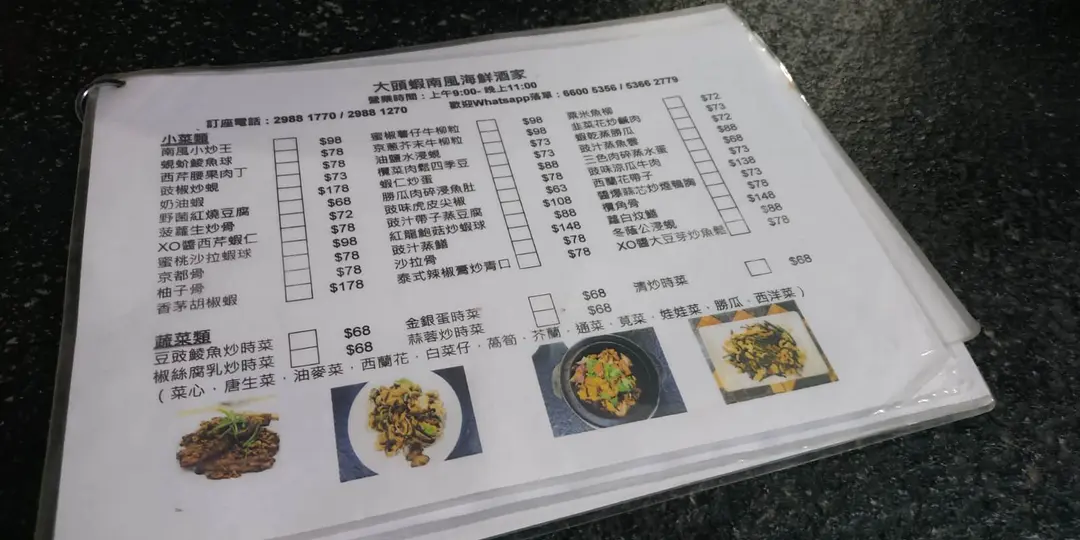 大頭蝦南風海鮮酒家
營業時間：上午9:00- 晚上11:00
訂座電話：2988 1770 / 2988 1270 歡迎Whatsapp落單：6600 5356 / 5366 2779
小菜類
南風小炒王 $98
蜆蚧鯪魚球 $78
西芹腰果肉丁 $78
豉椒炒蜆 $73
奶油蝦 $178
野菌紅燒豆腐 $68
菠蘿生炒骨 $72
XO醬西芹蝦仁 $78
蜜桃沙拉蝦球 $98
京都骨 $78
柚子骨 $78
香茅胡椒蝦 $178
蜜椒薯仔牛柳粒 $98
京蔥芥末牛柳粒 $98
油鹽水浸蜆 $73
欖菜肉鬆四季豆 $73
蝦仁炒蛋 $88
勝瓜肉碎浸魚肚 $78
豉味虎皮尖椒 $63
豉汁帶子蒸豆腐 $108
紅龍鮑菇炒蝦球 $88
豉汁蒸鱔 $148
沙拉骨 $78
泰式辣椒膏炒青口 $78
粟米魚柳 $72
韭菜花炒鹹肉 $73
蝦乾蒸勝瓜 $72
豉汁蒸魚雲 $88
三色肉碎蒸水蛋 $68
豉味涼瓜牛肉 $73
西蘭花帶子 $138
醬爆蒜芯炒燒鴨胸 $73
欖角骨 $78
蘿白炆鱔 $148
冬蔭公浸蜆 $88
XO醬大豆芽炒魚鬆 $78
蔬菜類
豆豉鯪魚炒時菜 $68
椒絲腐乳炒時菜 $68
金銀蛋時菜 $68
蒜蓉炒時菜 $68
清炒時菜 $68
( 菜心、唐生菜、油麥菜、西蘭花、白菜仔、萵筍、芥蘭、通菜、莧菜、娃娃菜、勝瓜、西洋菜 )